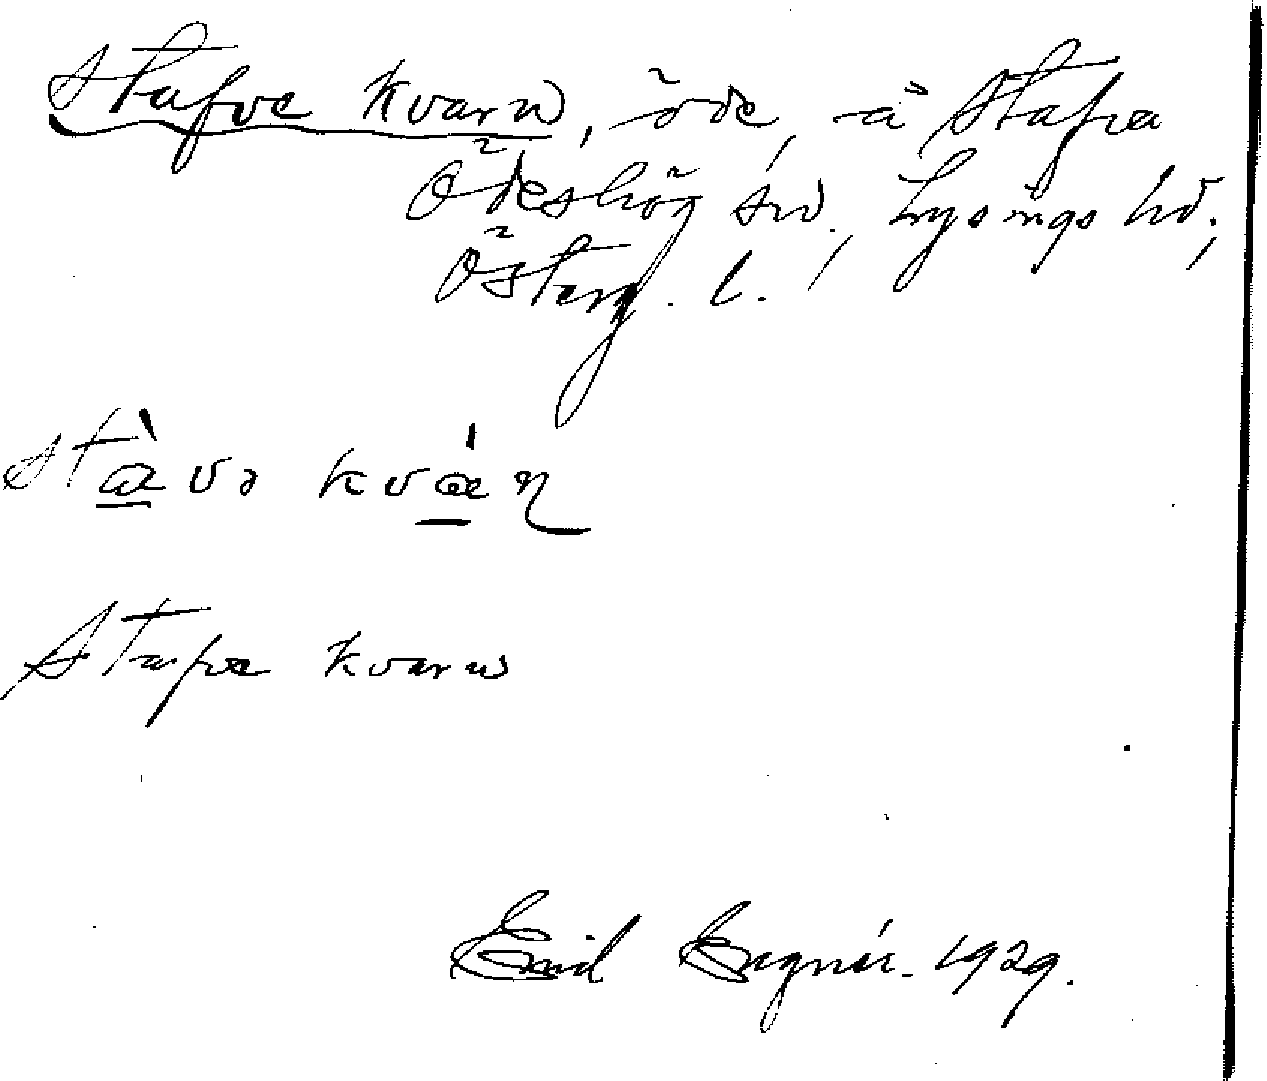 Stafve kvarn, öde, å Stafva
Ödeshög sn., Lysings hd.,
Österg. l.
stàvə kván
Stafve kvarn
1929.